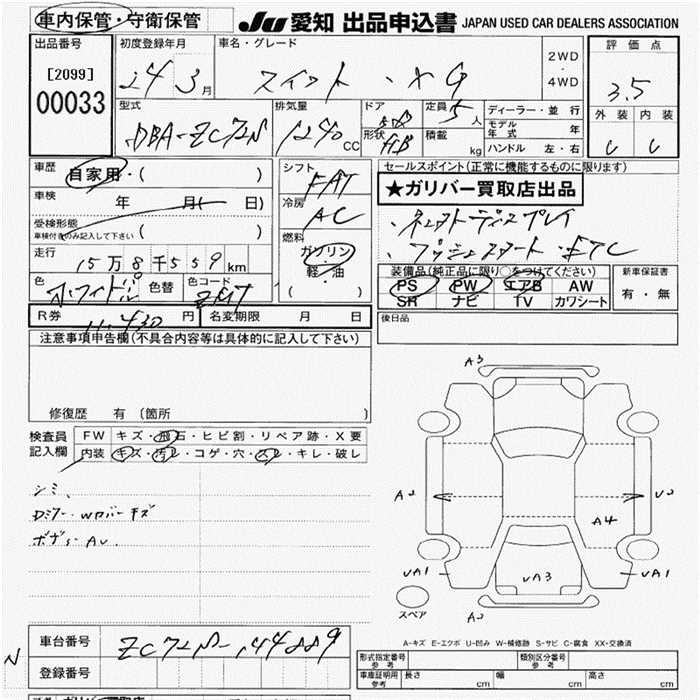 車内保管・守衛保管 JU 愛知 出品申込書 JAPAN USED CAR DEALERS ASSOCIATION
出品番号 初度登録年月 車名・グレード 2WD・4WD 評価点
[2099] 00033 24 3月 スイフト・XG 3.5
外装 内装
C C
型式 排気量 ドア 定員 ディーラー・並行
DBA-ZC72S 1240 CC 5D 5人 モデル年式 年
形状 HB 積載 kg ハンドル 左・右
車歴 自家用・( ) シフト FAT セールスポイント(正常に機能するものに限ります)
★ガリバー買取店出品
車検 年 月( 日) 冷房 AC
・ネクストディスプレイ
受検形態 車検付きのみ記入して下さい ( ) 燃料 ガソリン・軽油 ( )
・プッシュスタート・ETC
走行 15万8千559km
装備品(純正品に限り○をつけてください) 新車保証書
色 ホワイトパール 色替 色コード ZQT
PS PW エアB AW 有・無
SR ナビ TV カワシート
R券 11,430円 名変期限 月 日
後日品
注意事項申告欄(不具合内容等は具体的に記入して下さい)
修復歴 有 (箇所 )
検査員記入欄 FW キズ・飛石・ヒビ割・リペア跡・X要
内装 キズ・汚レ・コゲ・穴・スレ・キレ・破レ
シミ、
Dミラー・Wカバーキズ
ボデーAU.
A3
A2 U2
A4
UA1 UA3 UA1
A2
スペア
A-キズ E-エクボ U-凹み W-補修跡 S-サビ C-腐食 XX-交換済
車台番号 ZC72S-144889
N
登録番号
形式指定番号 参考 類別区分番号 参考
車庫証明用 参考 長さ cm 幅 cm 高さ cm
ガリバー買取店